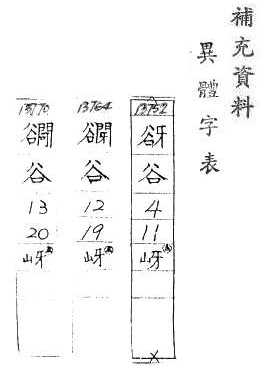 補充資料
異體字表
13752
谺
谷
4
11
岈
13764
谷
12
19
岈
13770
谷
13
20
岈